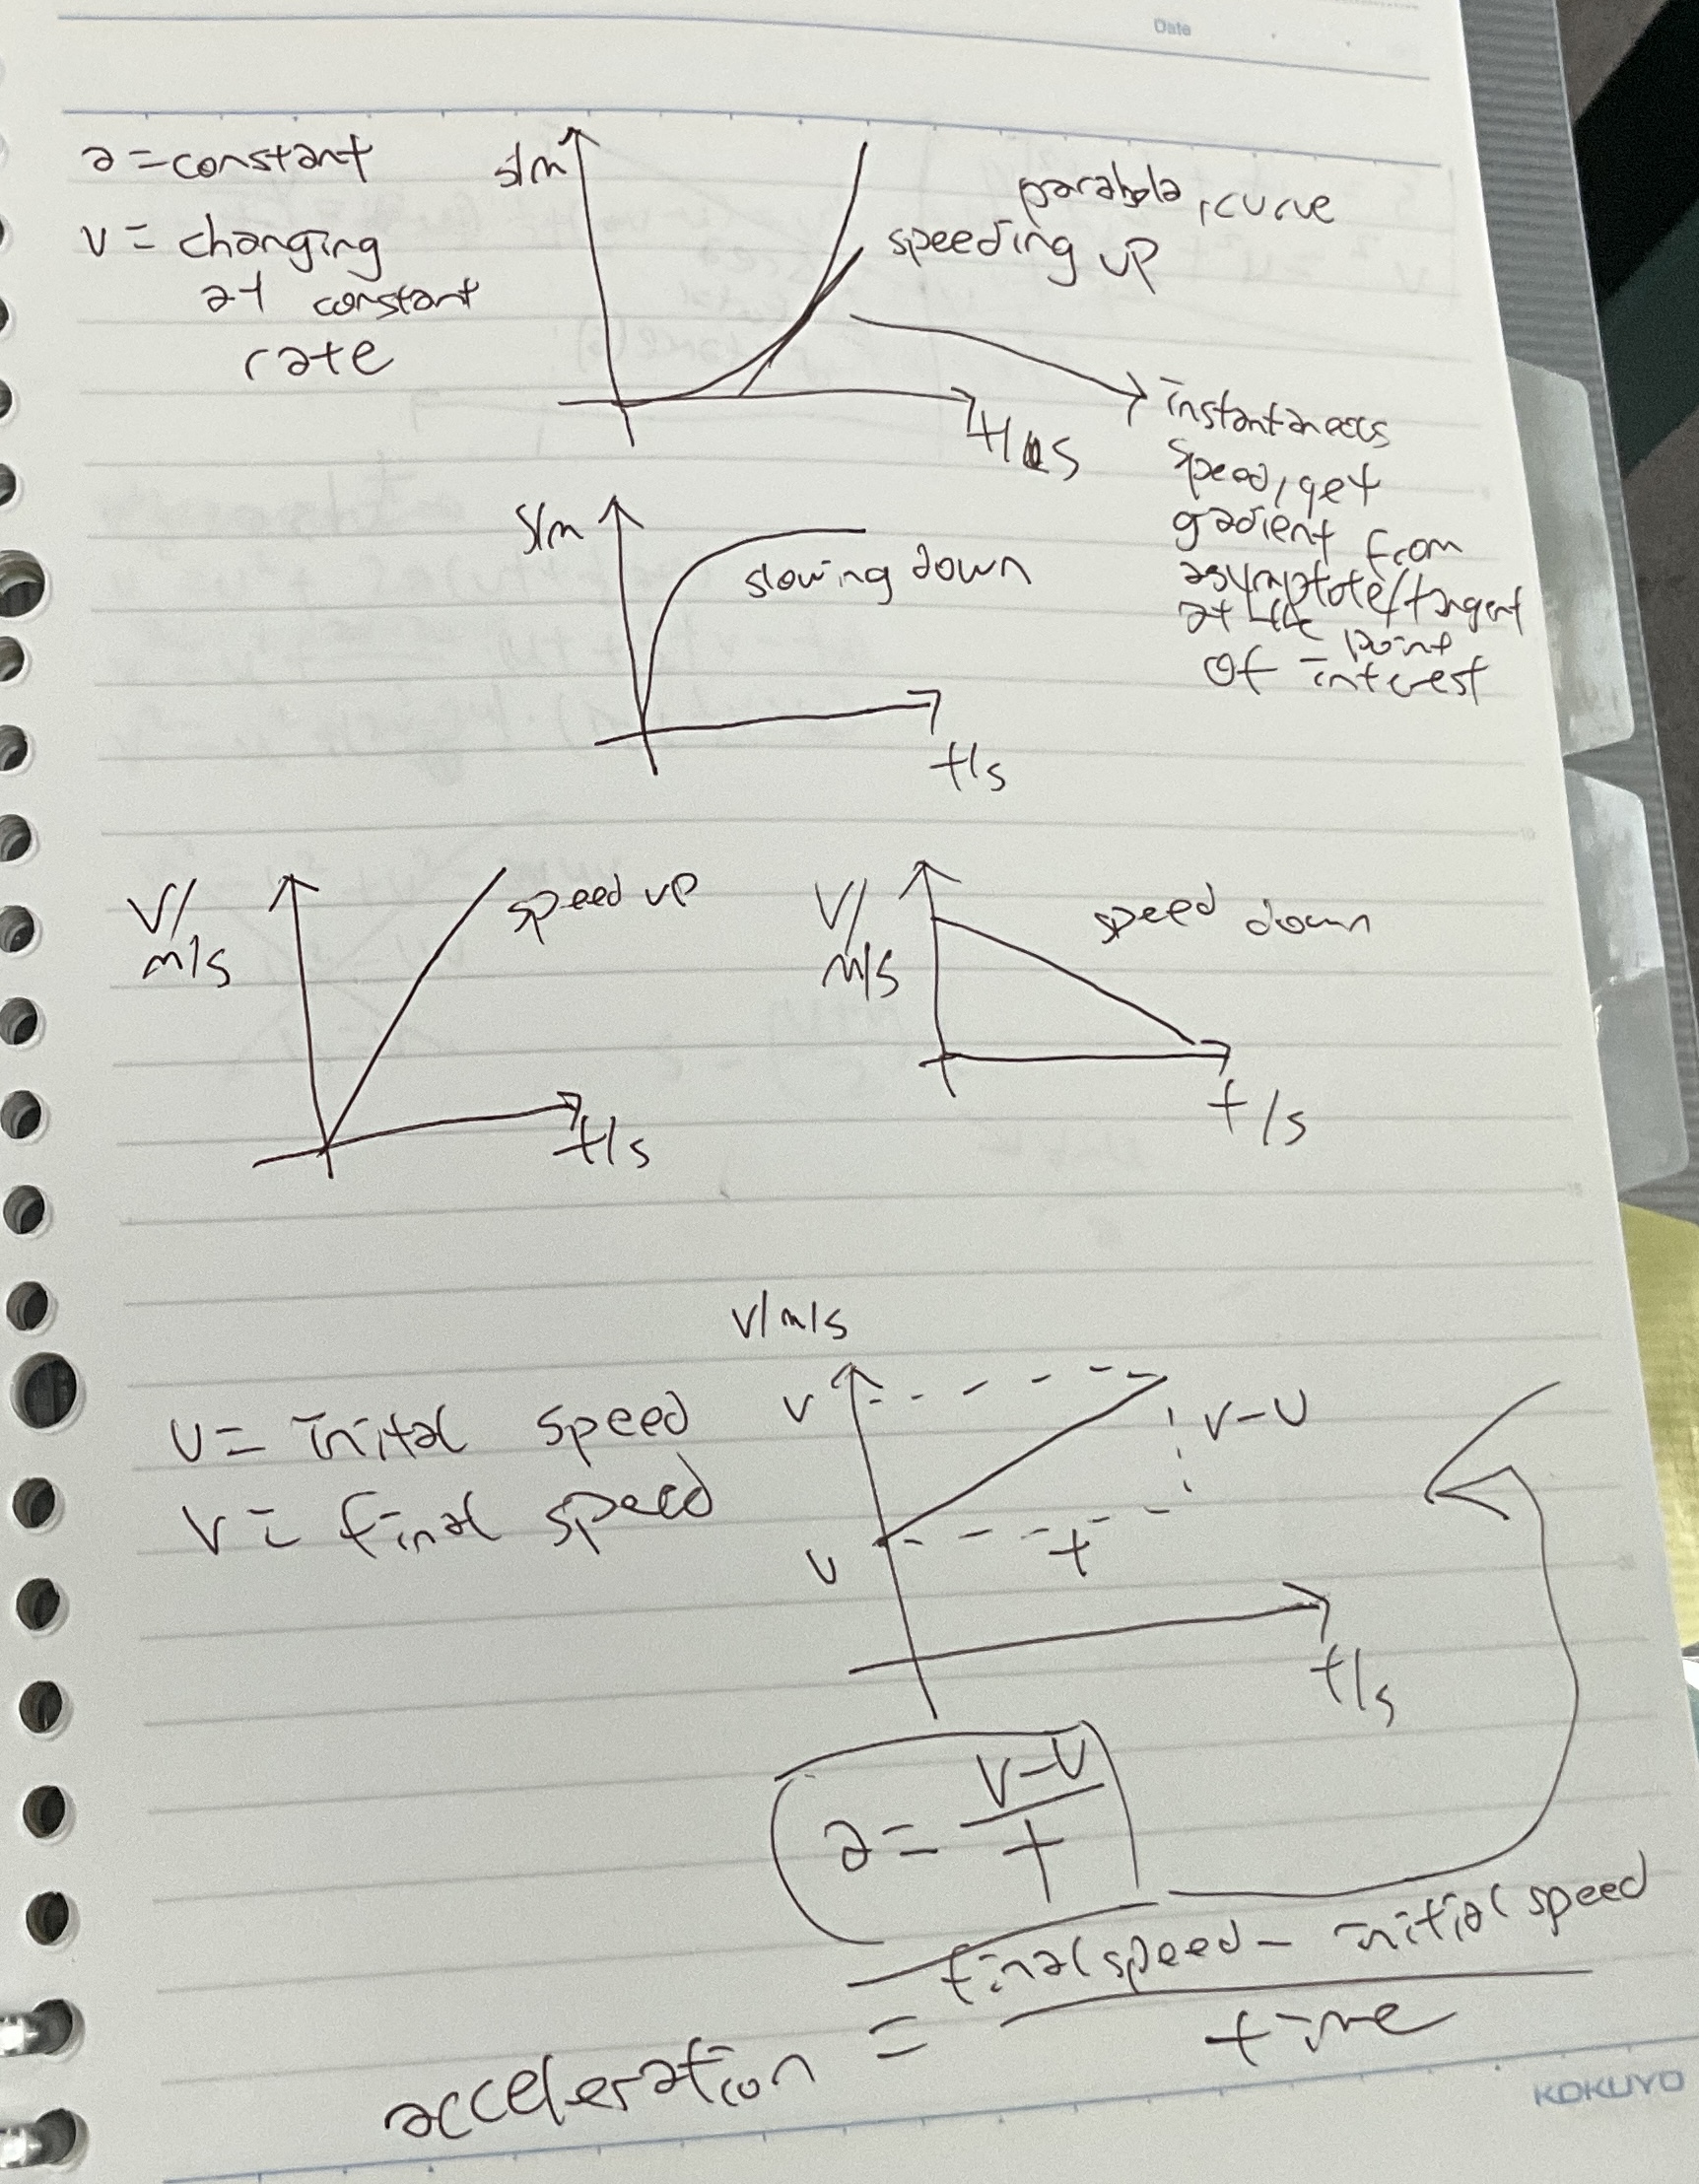 Date
a = constant
v = changing
at constant
rate
s/m
parabola, curve
speeding up
t/s
instantaneous
speed, get
gradient from
asymptote/tangent
at the point
of interest
s/m
slowing down
t/s
V/
m/s
speed up
t/s
V/
m/s
speed down
t/s
v/m/s
v
v-u
u = inital speed
v = final speed
u
t
t/s
a = v-u
t
final speed - initial speed
acceleration =
time
KOKUYO